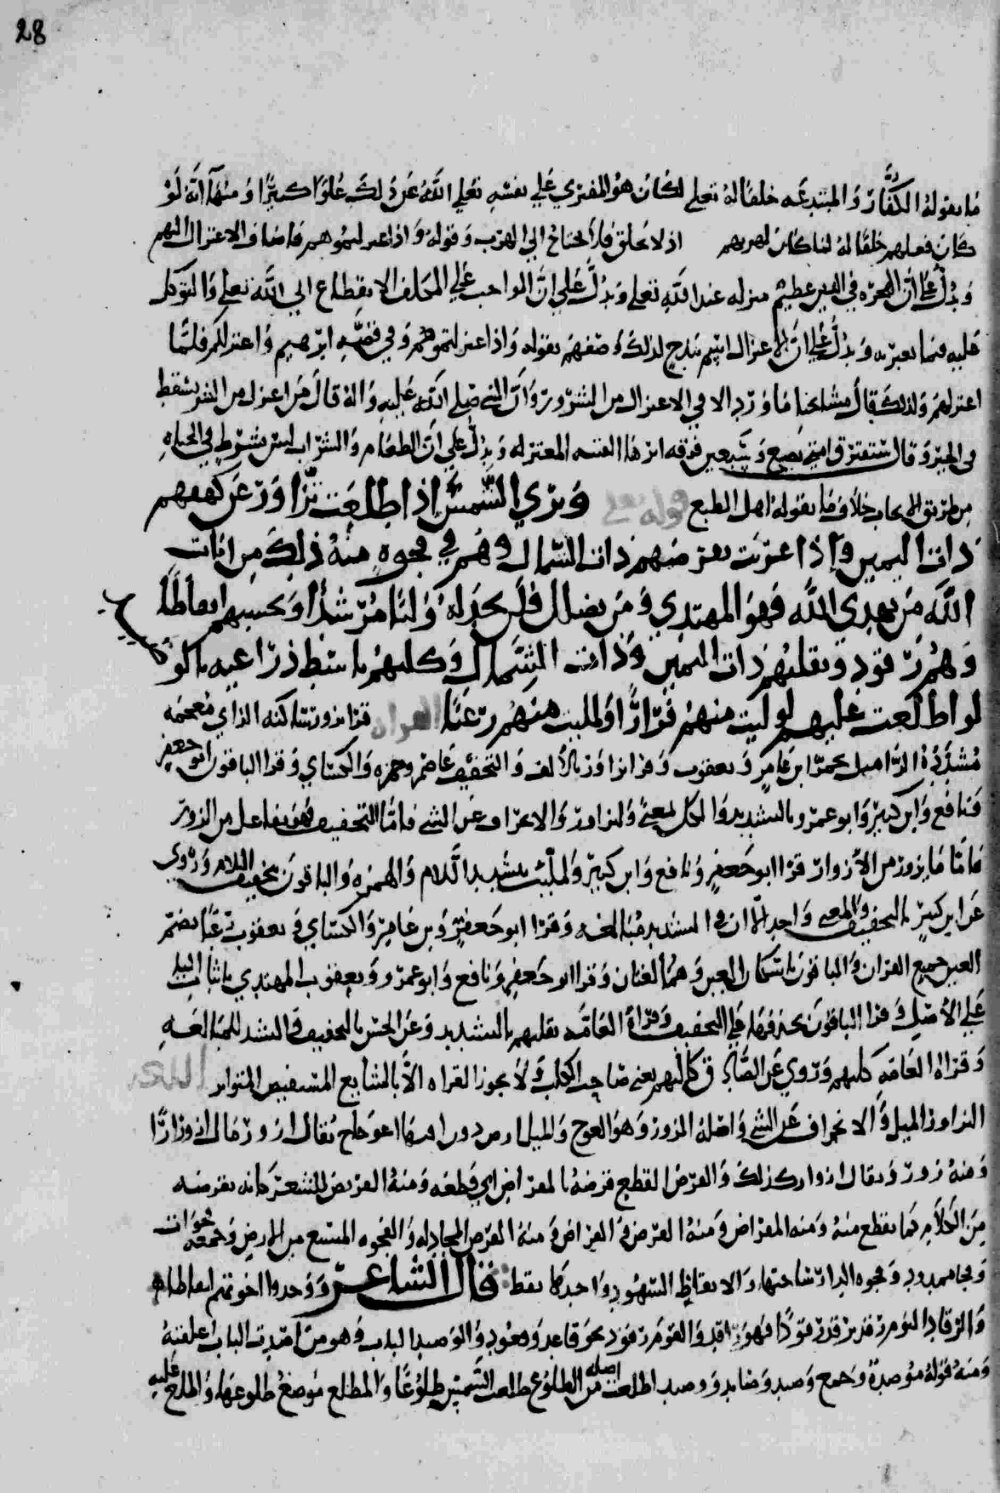 28
ما يقوله الكفار والمبتدعه خلقا له تعلى لكان هو المفتري على نفسه تعلى الله عن ذلك علوا كبيرا ومنها انه لو
كان فعلهم خلقا له لما كان لهربهم اذ لا يخلق فلا يحتاج الى الهرب وقوله واذ اعتزلتموهم فاضاف الاعتزال اليهم
ويدل على ان الهجره في الدين عظيم منزله عند الله تعلى ويدل على ان الواجب على المكلف الانقطاع الى الله تعلى والتوكل
عليه فيما ويدل على ان الاعتزال اسم مدح لذلك وصفهم بقوله واذ اعتزلتموهم وفي قصه ابرهيم واعتزلكم فلما
اعتزلهم ولذلك قال مشايخنا ما ورد الاعتزال الا في الاعتزال من الشرور وان النبي صلى الله عليه واله قال من اعتزل من الشر سقط
في الخير وقال ستفترق امتي بضع وسبعين فرقه ابرها الفئه المعتزله ويدل على ان الطعام والشراب ليس بشرط في الحياه
من طريق الايجاب خلاف ما يقوله اهل الطبع قوله تعلى وترى الشمس اذا طلعت تزاور عن كهفهم
ذات اليمين واذا غربت تقرضهم ذات الشمال وهم في فجوه منه ذلك من ايات
الله من يهدي الله فهو المهتدي ومن يضلل فلن تجد له وليا مرشدا وتحسبهم ايقاظا
وهم رقود ونقلبهم ذات اليمين وذات الشمال وكلبهم باسط ذراعيه بالوصيد
لو اطلعت عليهم لوليت منهم فرارا ولملئت منهم رعبا القراه قرا تزور ساكنه الزاي معجمه
مشدده الرا مثل تحمر ابن عامر ويعقوب وقرا تزاور بالالف والتخفيف عاصم وحمزه والكسائي وقرا الباقون ابو جعفر
ونافع وابن كثير وابو عمرو بالتشديد والكل بمعنى والتزاور والانحراف عن الشي فاما التخفيف فهو تفاعل من الزور
فاما ما تزور من الازوار قرا ابو جعفر ونافع وابن كثير ولملئت بتشديد اللام والهمزه والباقون بتخفيف اللام وروي
عن ابن كثير بالتخفيف والمعنى واحد الا ان في التشديد مبالغه وقرا ابو جعفر وبن عامر والكسائي ويعقوب رعبا بضم
العين جميع القران والباقون باسكان العين وهما لغتان وقرا ابو جعفر ونافع وابو عمرو ويعقوب المهتدي باثبات اليا
على الاصل وقرا الباقون بحذفها على التخفيف وقراه العامه نقلبهم بالتشديد وعن الحسن بالتخفيف والتشديد للمبالغه
وقراه العامه كلبهم وروي عن الصادق كالبهم يعني صاحب الكلب ولا يجوز القراه الا بالشايع المستفيض المتواتر اللغه
التزاور الميل والانحراف عن الشي واصله الزور وهو العوج والميل يقال ازور مال ازورارا
ومنه زور ويقال ازوار كذلك والقرض القطع قرضه بالمقراض اي قطعه ومنه القريض للشعر كانه يقرضه
من الكلام كما يقطع منه ومنه المقراض ومنه القرض والقراض ومنه القرض المجادله والفجوه المتسع من الارض وجمعه فجوات
وفجا ممدود وفجوه الدار ساحتها والايقاظ السهود واحدها يقظ قال الشاعر ووحدوا اخوتهم ايقاظا
والرقاد النوم رقد يرقد رقودا فهو راقد والقوم رقود نحو قاعد وقعود والوصيد الباب وهو من اوصدت الباب اغلقته
ومنه قوله موصده وجمع وصيد وصايد ووصد اطلعت اصله من الطلوع طلعت الشمس طلوعا والمطلع موضع طلوعها واطلع عليه